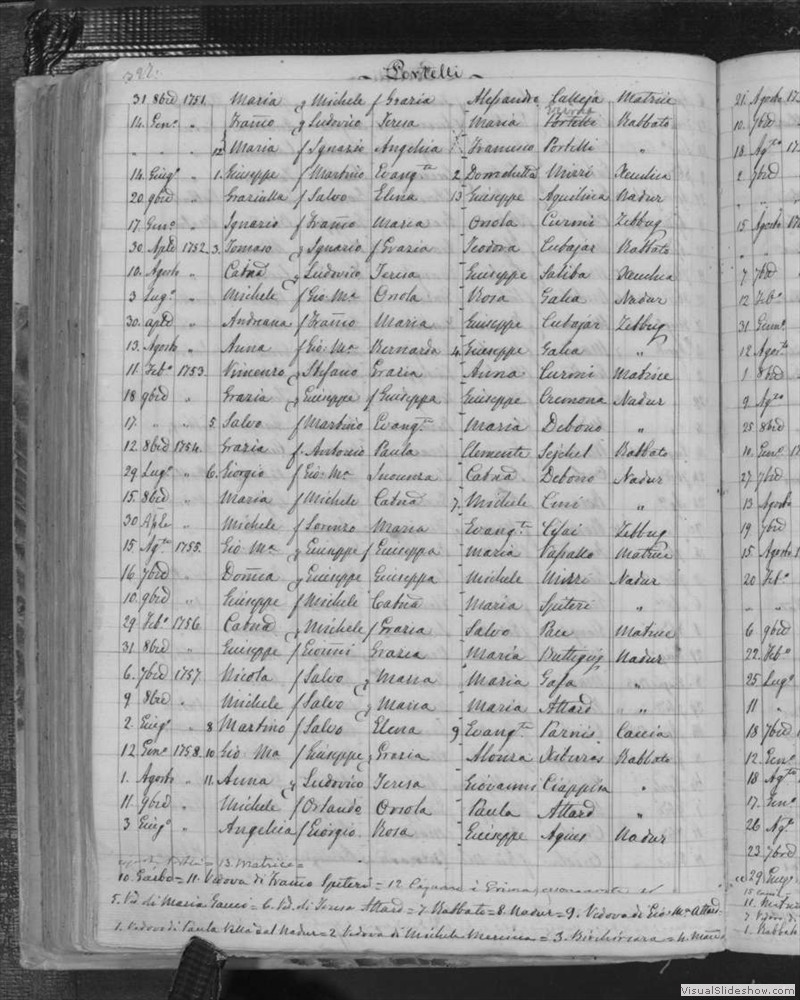 ~ Portelli ~
31. 8bre 1751. Maria Michele f Grazia Alessandro Calleja Matrice
14. Gen.º " Franco Ludovico Teresa Maria Portelli Rabbato
" " 12 Maria f Ignazio Angelica Francesco Portelli "
14. Giug.º " 1. Giuseppe f Martino Evang.ta 2 Mizzi Xeuchia
20. 9bre " Graziulla f Salvo Elena 13 Giuseppe Agueiina Nadur
17. Gen.º " Ignazio f Franco Maria Orsola Curmi Zebbug
30. Aple 1752. 3. Tomaso Ignazio f Grazia Teodora Cubajar Rabbato
10. Agosto " Catna Ludovico Teresa Giuseppe Saliba Xeuchia
3 Lug.º " Michele f Gio Ma Orsola Rosa Galia Nadur
30. aple " Andreana f Franco Maria Giuseppe Cubajar Zebbug
13. Agosto " Anna f Gio Ma Bernarda 4. Giuseppe Galia "
11. Feb.º 1753. Vincenzo Stefano Grazia Anna Curmi Matrice
18 9bre " Grazia Giuseppe f Giuseppa Giuseppe Cremona Nadur
17. " " 5. Salvo f Martino Evang.ta Maria Debono "
12. 8bre 1754. Grazia f Antonio Paula Clemente Sejchel Rabbato
29. Lug.º " 6. Giorgio f Gio Ma Inocenza Catna Debono Nadur
15. 8bre " Maria f Michele Catna 7. Michele Cini "
30. Aple " Michele f Lorenzo Maria Evang.ta Cefai Zebbug
15. Ag.to 1755. Gio Ma Giuseppe f Giuseppa Maria Vassallo Matrice
16. 7bre " Domca Giuseppe Giuseppa Michele Mizzi Nadur
10. 9bre " Giuseppe f Michele Catna Maria Spiteri "
29. Feb.º 1756. Catna Michele f Grazia Salvo Pace Matrice
31. 8bre " Giuseppe f Grazia Maria Buttigiġ Nadur
6. 7bre 1757. Nicola f Salvo Maria Maria Gafa "
9. 8bre " Michele f Salvo Maria Maria Attard "
2. Giug.º " 8 Martino f Salvo Elena 9 Evang.ta Parnis Caccia
12. Gen.º 1758. 10 Gio Ma f Giuseppe Grazia Aloisea Rabbato
1. Agosto " 11. Anna Ludovico Teresa Giovanni Ciappara "
11. 9bre " Michele f Orlando Orsola Paula Attard "
3 Giug.º " Angelica f Giorgio Rosa Giuseppe Agius Nadur
= 13. Matrice =
10. Garbo = 11. Vedova di Franco Spiteri = 12.
5. Vd. di Maria Gauci = 6. Vd. di Teresa Attard = 7 Rabbato = 8. Nadur = 9. Vedova di Gio Ma Attard
1. Vedovo di Paula Vella dal Nadur = 2 Vedova di Michele = 3. = 4.
21. Agosto
10. 7bre
18. Ag.to
2 7bre
15 Agosto
7 7bre
12 Feb.º
31 Genn.º
12 Agos.to
1 8bre
9 Ag.to
25 8bre
10. Gen.º
27 7bre
13 Agosto
19 7bre
15 Agosto
20 Feb.º
6 9bre
22. Feb.º
25 Lug.º
11 "
18 7bre
12. Gen.º
18 Ag.to
17. Gen.º
26 Ag.to
23 7bre
29 Giug.º
11. Matrice
7 Vedovo di
1. Rabbato
VisualSlideshow.com